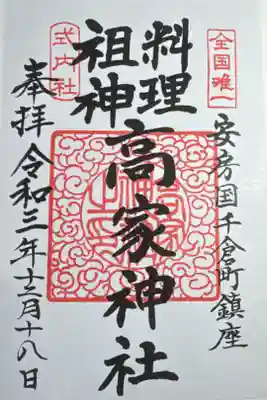 全国唯一
安房国千倉町鎮座
料理
祖神
高家神社
式内社
奉拝
令和三年十二月十八日